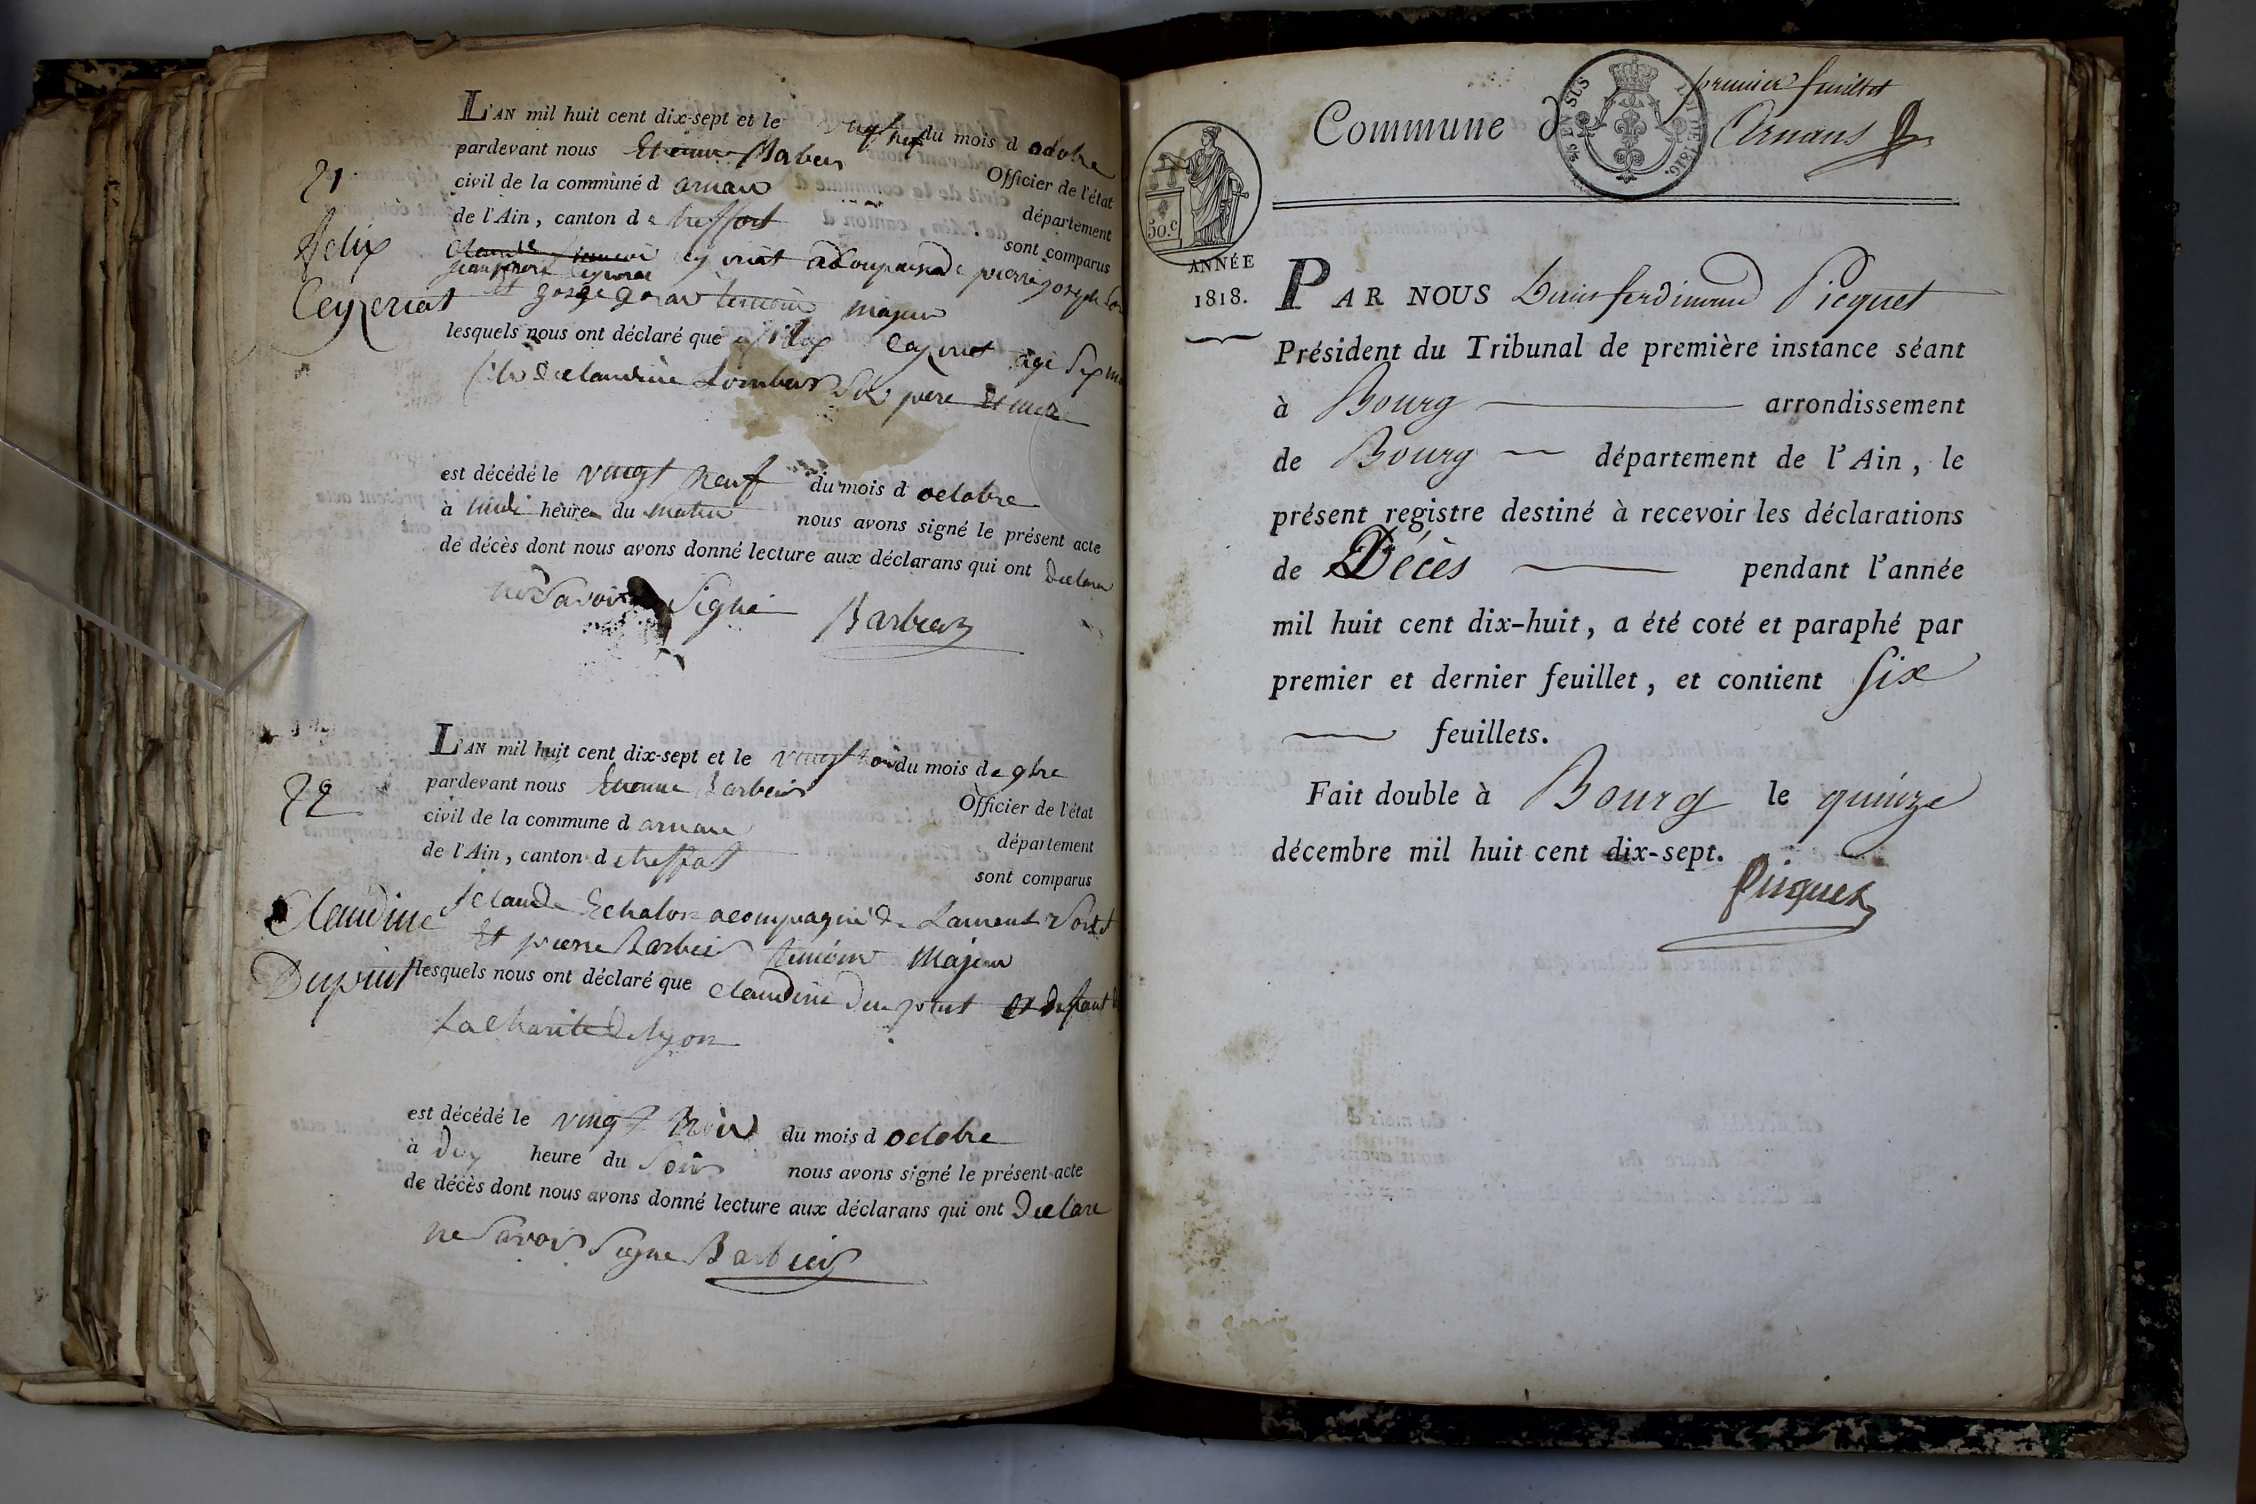 L'AN mil huit cent dix-sept et le vingt neuf du mois d octobre
pardevant nous Etienne Barbier Officier de l'état
civil de la commune d arnans département
de l'Ain, canton de treffort sont comparus
21
Félix
Ceyzeriat
accompagné de pierre joseph
et temoin majeur
lesquels nous ont déclaré que félix agé six
de claudine ses pere et mere
est décédé le vingt neuf du mois d octobre
à midi heure du matin nous avons signé le présent acte
de décès dont nous avons donné lecture aux déclarans qui ont declare
ne savoir signé Barbier
L'AN mil huit cent dix-sept et le vingt trois du mois de 9bre
pardevant nous Etienne Barbier Officier de l'état
civil de la commune d arnans département
de l'Ain, canton de treffort sont comparus
22
Claudine
Dupuint
claude Echalon acompagné de Laurent
et pierre Barbier temoin majeur
lesquels nous ont déclaré que claudine dupuint enfant de
la charité de lyon
est décédé le vingt trois du mois d octobre
à dix heure du soir nous avons signé le présent acte
de décès dont nous avons donné lecture aux déclarans qui ont declare
ne savoir signe Barbier
premier feuillet
Commune d Arnans
EN SUS
LOI DE 1816.
50.c
ANNÉE
1818.
PAR NOUS Louis ferdinand Picquet
Président du Tribunal de première instance séant
à Bourg arrondissement
de Bourg département de l'Ain, le
présent registre destiné à recevoir les déclarations
de Décès pendant l'année
mil huit cent dix-huit, a été coté et paraphé par
premier et dernier feuillet, et contient six
feuillets.
Fait double à Bourg le quinze
décembre mil huit cent dix-sept.
Picquet